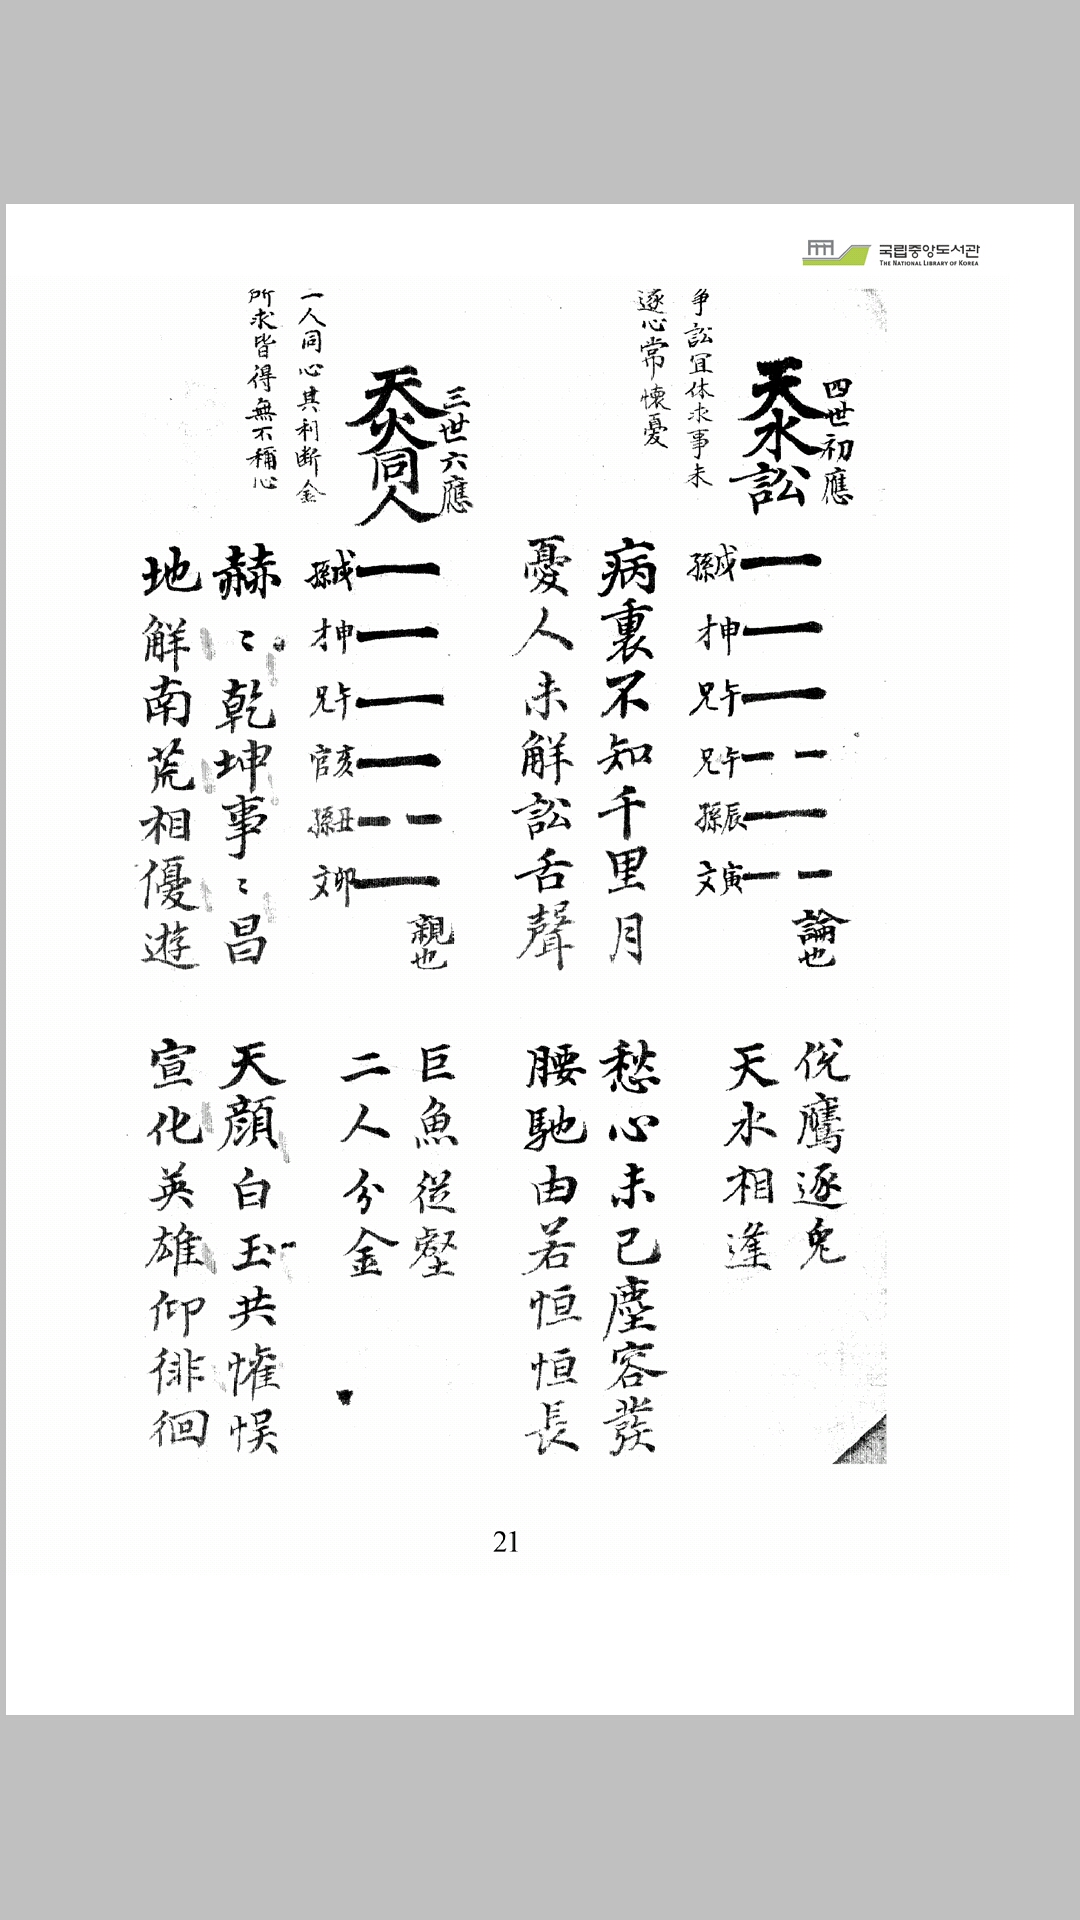 국립중앙도서관
THE NATIONAL LIBRARY OF KOREA
四世初應
天水訟
爭訟冝休求事未
逐心常懷憂
孫戌
才申
兄午
兄午
孫辰
文寅
論也
病裏不知千里月
憂人未解訟舌聲
鷹逐兔
天水相逢
愁心未已塵容發
腰馳由若恒恒長
三世六應
天火同人
一人同心其利斷金
所求皆得無不稱心
孫戌
才申
兄午
官亥
孫丑
文卯
親也
赫〻乾坤事〻昌
地解南荒相優遊
巨魚從壑
二人分金
天顔白玉共懽悞
宣化英雄仰徘徊
21